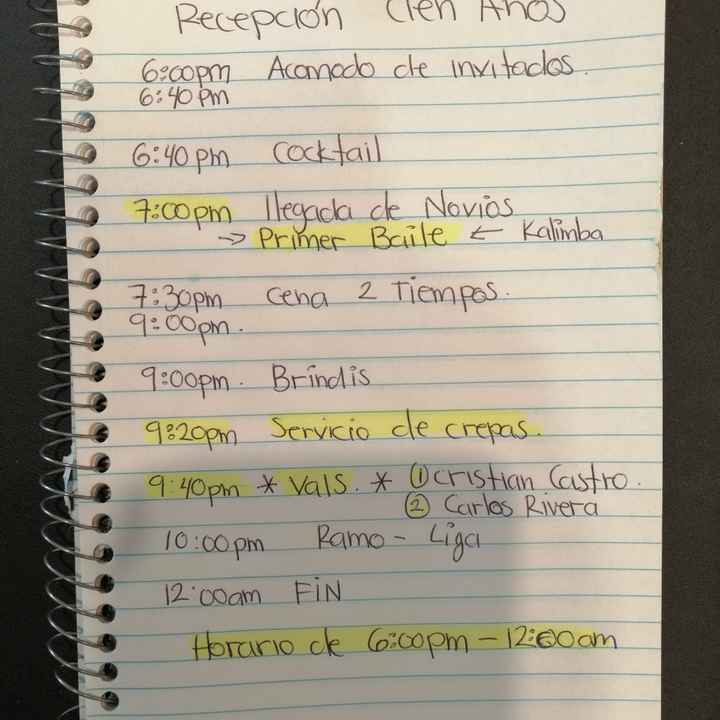 Recepción Cien Años
6:00pm Acomodo de invitados.
6:40 pm
6:40 pm Cocktail
7:00pm llegada de Novios
→ Primer Baile ← Kalimba
7:30pm Cena 2 Tiempos.
9:00pm.
9:00pm. Brindis
9:20pm Servicio de crepas.
9:40pm * Vals. * ① Cristian Castro.
② Carlos Rivera
10:00pm Ramo - Liga
12:00am FIN
Horario de 6:00pm - 12:00am